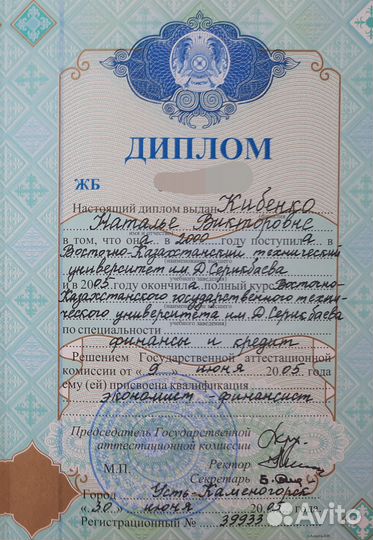 ДИПЛОМ
ЖБ
Настоящий диплом выдан Кибенко
Наталье Викторовне
в том, что она в 2000 году поступила в
Восточно-Казахстанский технический
университет им. Д. Серикбаева
и в 2005 году окончила полный курс Восточно-
Казахстанского государственного техни-
ческого университета им. Д. Серикбаева
по специальности
финансы и кредит
Решением Государственной аттестационной
комиссии от « 9 » июня 2005 года
ему (ей) присвоена квалификация
экономист - финансист
Председатель Государственной
аттестационной комиссии
Ректор
М.П.
Секретарь
Город Усть-Каменогорск
« 30 » июня 2005 года.
Регистрационный № 39933
Avito